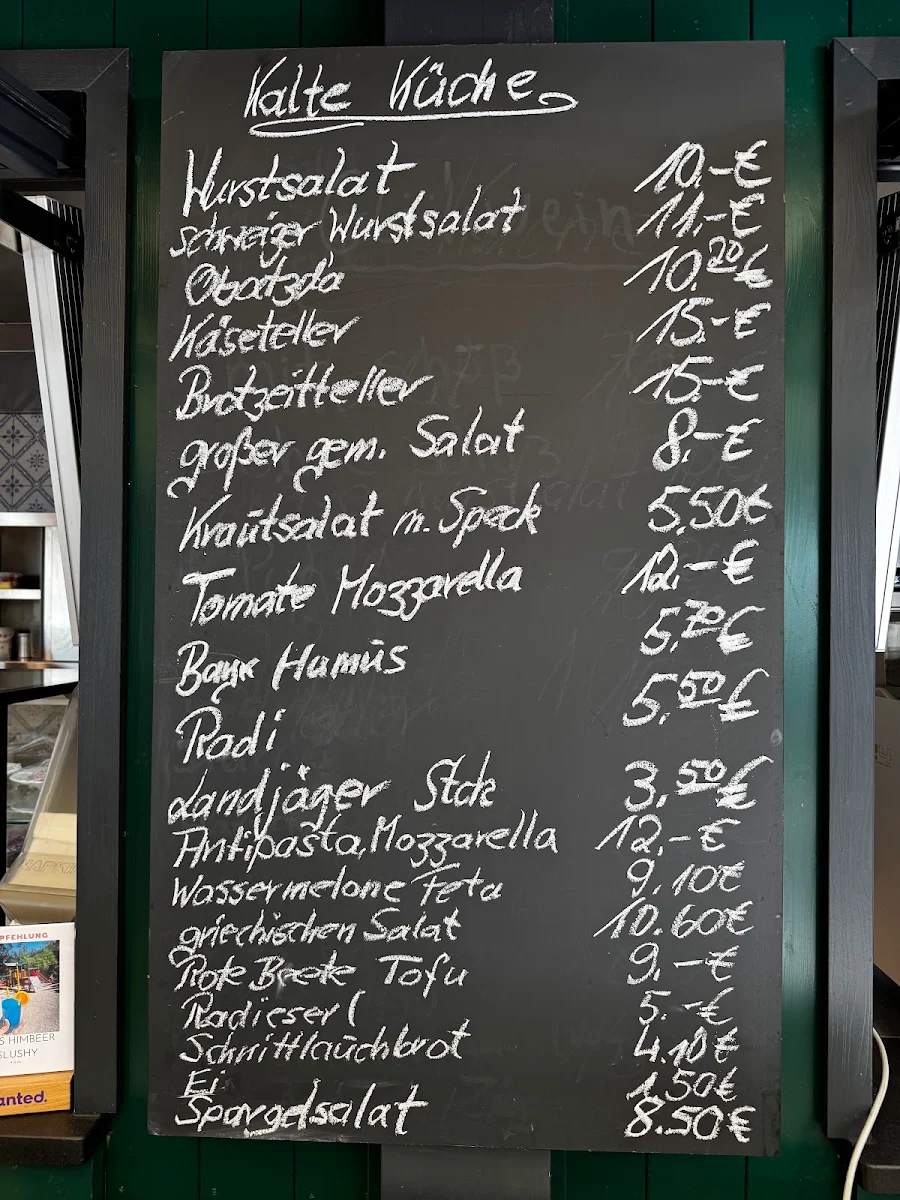 Kalte Küche
Wurstsalat 10,-€
Schweizer Wurstsalat 11,-€
Obatzda 10,20€
Käseteller 15,-€
Brotzeitteller 15,-€
großer gem. Salat 8,-€
Krautsalat m. Speck 5,50€
Tomate Mozzarella 12,-€
Bayr Humus 5,70€
Radi 5,50€
Landjäger Stck 3,50€
Antipasta, Mozzarella 12,-€
Wassermelone Feta 9.10€
griechischen Salat 10.60€
Rote Beete Tofu 9.-€
Radieserl 5.-€
Schnittlauchbrot 4.10€
Ei 1.50€
Spargelsalat 8.50€
PFEHLUNG
S HIMBEER
SLUSHY
anted.